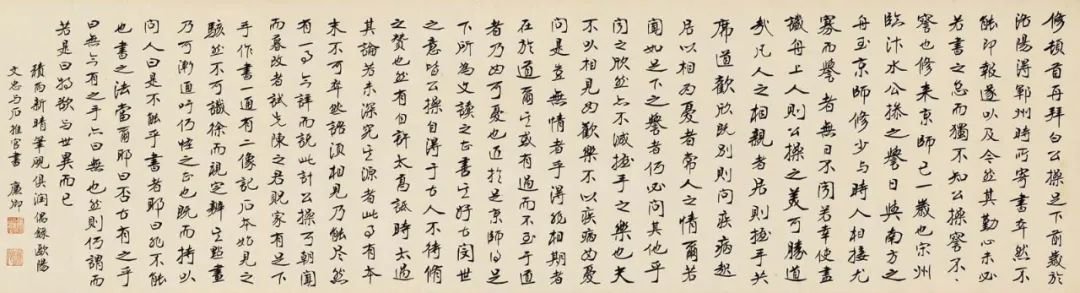 修頓首再拜白公操足下前歲於
洛陽得鄆州時所寄書卒然不
能即報遂以及今然其勤心未必
若書之怠而獨不知公操察不
察也修來京師已一歲也宋州
臨汴水公操之譽日與南方之
舟至京師修少與時人相接尤
寡而譽者無日不聞若幸使盡
識舟上人則公操之美可勝道
哉凡人之相親者居則握手共
席道歡欣既別則問疾病起
居以相為憂者常人之情爾若
聞如足下之譽者何必問其他乎
聞之欣然亦不減握手之樂也夫
不以相見為歡樂不以疾病為憂
問是豈無情者乎得非相期者
在於道爾其或有過而不至于道
者乃為可憂也近於京師得足
下所為文讀之甚善其好古閔世
之意皆公操自得于古人不待脩
之贊也然有自許太高詆時太過
其論若未深究其源者此事有本
末不可卒然語須相見乃能盡然
有一事今詳而說此計公操可朝聞
而暮改者試先陳之君貺家有足下
手作書一通有二像記石本始見之
駭然不可識徐而視定辨其點畫
乃可漸通吁何怪之甚也既而持以
問人曰是不能乎書者耶曰非不能
也書之法當爾耶曰否古有之乎
曰無今有之乎亦曰無也然則何謂而
若是曰特欲與世異而已
積雨新晴筆硯俱潤偶錄歐陽
文忠与石推官書